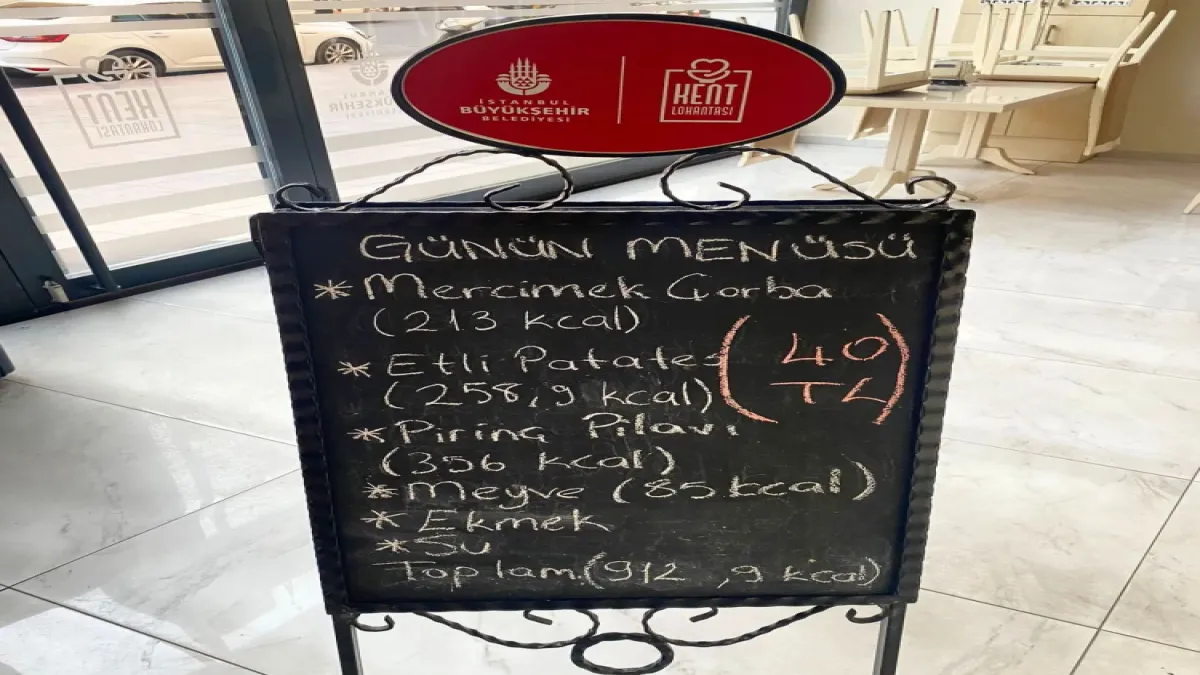 İSTANBUL
BÜYÜKŞEHİR
BELEDİYESİ
KENT
LOKANTASI
GÜNÜN MENÜSÜ
* Mercimek Çorba
(213 kcal)
* Etli Patates
(258,9 kcal)
(40
TL)
* Pirinç Pilavı
(356 kcal)
* Meyve (85 kcal)
* Ekmek
* Su
Toplam.(912,9 kcal)
KENT
LOKANTASI
İSTANBUL
BÜYÜKŞEHİR
BELEDİYESİ